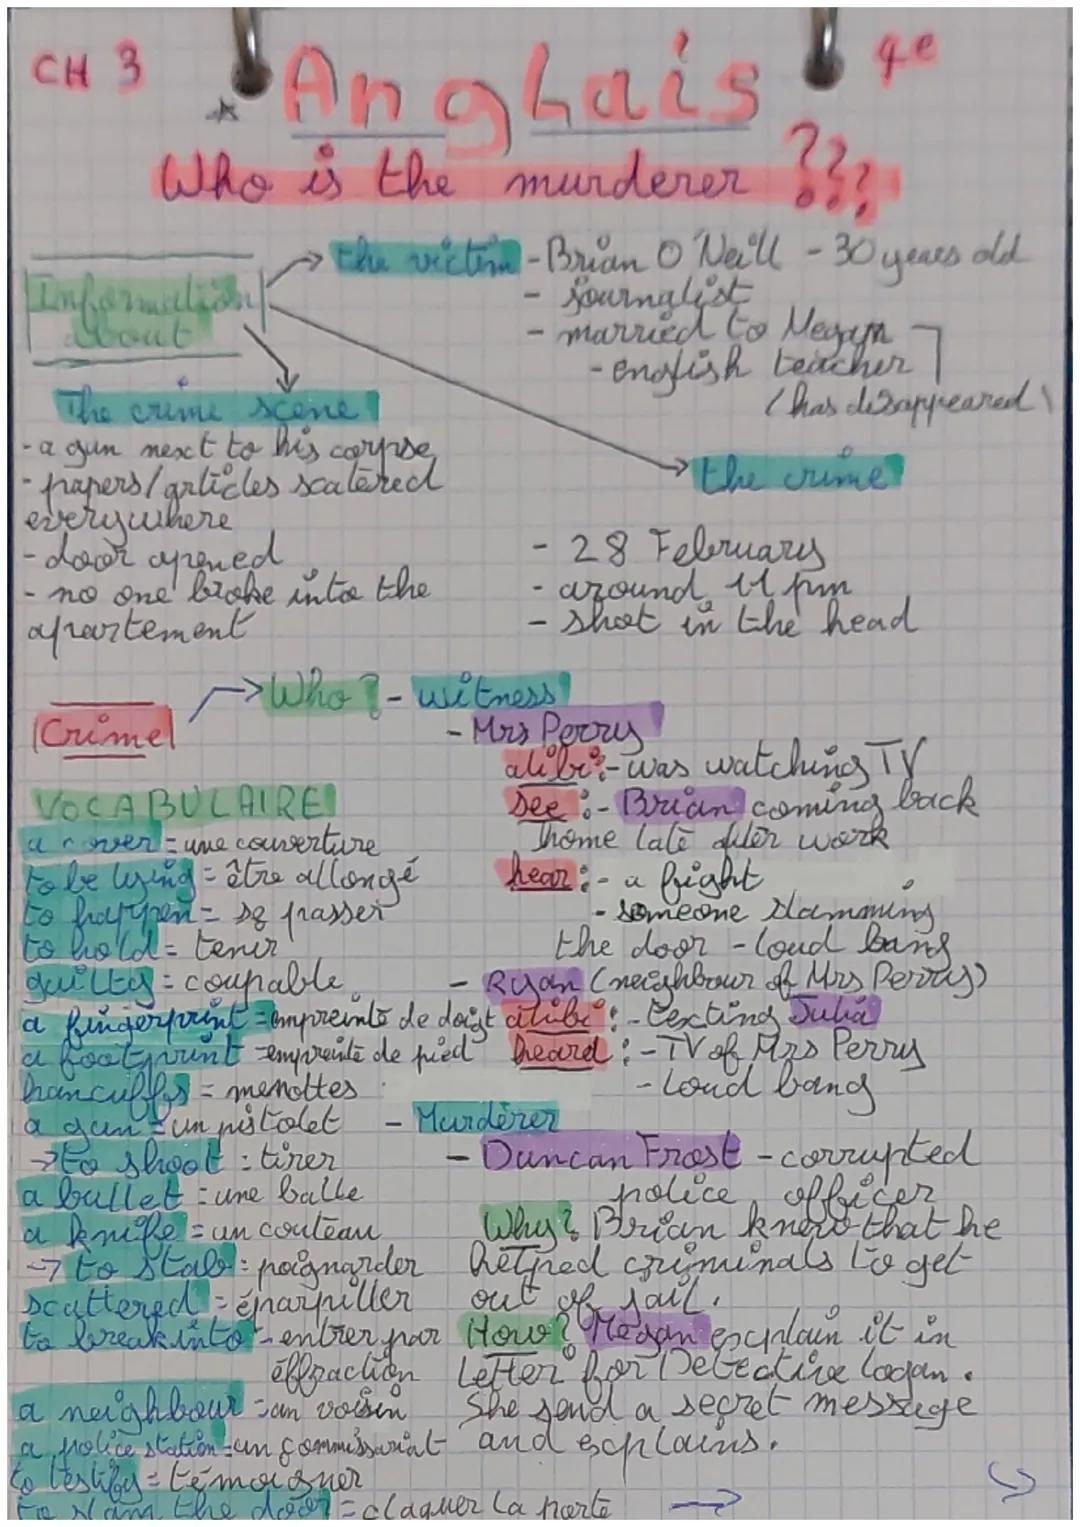 CH 3
Anglais
4e
Who is the murderer ???
Information
about
the victim - Brian O'Neill - 30 years old
- journalist
- married to Megan
- english teacher
(has disappeared)
The crime scene
- a gun next to his corpse
- papers/articles scatered
everywhere
- door opened
- no one broke into the
apartement
the crime
- 28 February
- around 11 pm
- shot in the head
Crime
Who ? - witness
- Mrs Perry
alibi : - was watching TV
see : - Brian coming back
home late after work
hear : - a fright
- someone slamming
the door - loud bang
- Ryan (neighbour of Mrs Perry)
alibi : - texting Julia
heard : - TV of Mrs Perry
- Loud bang
- Murderer
- Duncan Frost - corrupted
police officer
Why ? Brian knew that he
helped criminals to get
out of jail.
How ? Megan explain it in
letter for Detective Logan.
She send a secret message
and explains.
VOCABULAIRE
a cover = une couverture
to be lying = être allongé
to happen = se passer
to hold = tenir
guilty = coupable
a fingerprint = empreinte de doigt
a footprint = empreinte de pied
hancuffs = menottes
a gun = un pistolet
→ to shoot : tirer
a bullet = une balle
a knife = un couteau
→ to stab : poignarder
scattered = éparpiller
to break into = entrer par
éffraction
a neighbour = un voisin
a police station = un commissariat
to testify = témoigner
to slam the door = claquer la porte